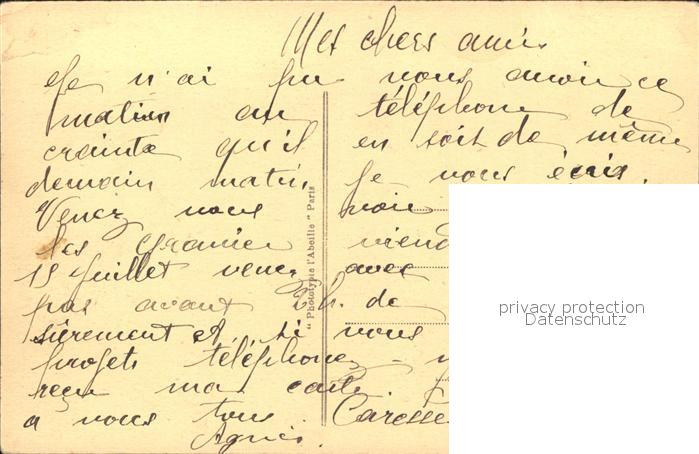 Mes chers amis
Je n'ai pu vous avoir ce
matin au téléphone de
crainte qu'il en soit de même
demain matin Je vous écris.
Venez nous voir
les Granier viend
15 juillet venez avec
pas avant 2 h. de
sûrement et si vous
projets téléphonez -
reçu ma carte
à vous tous Caresse
Agnès.
" Phototypie l'Abeille " Paris
privacy protection
Datenschutz